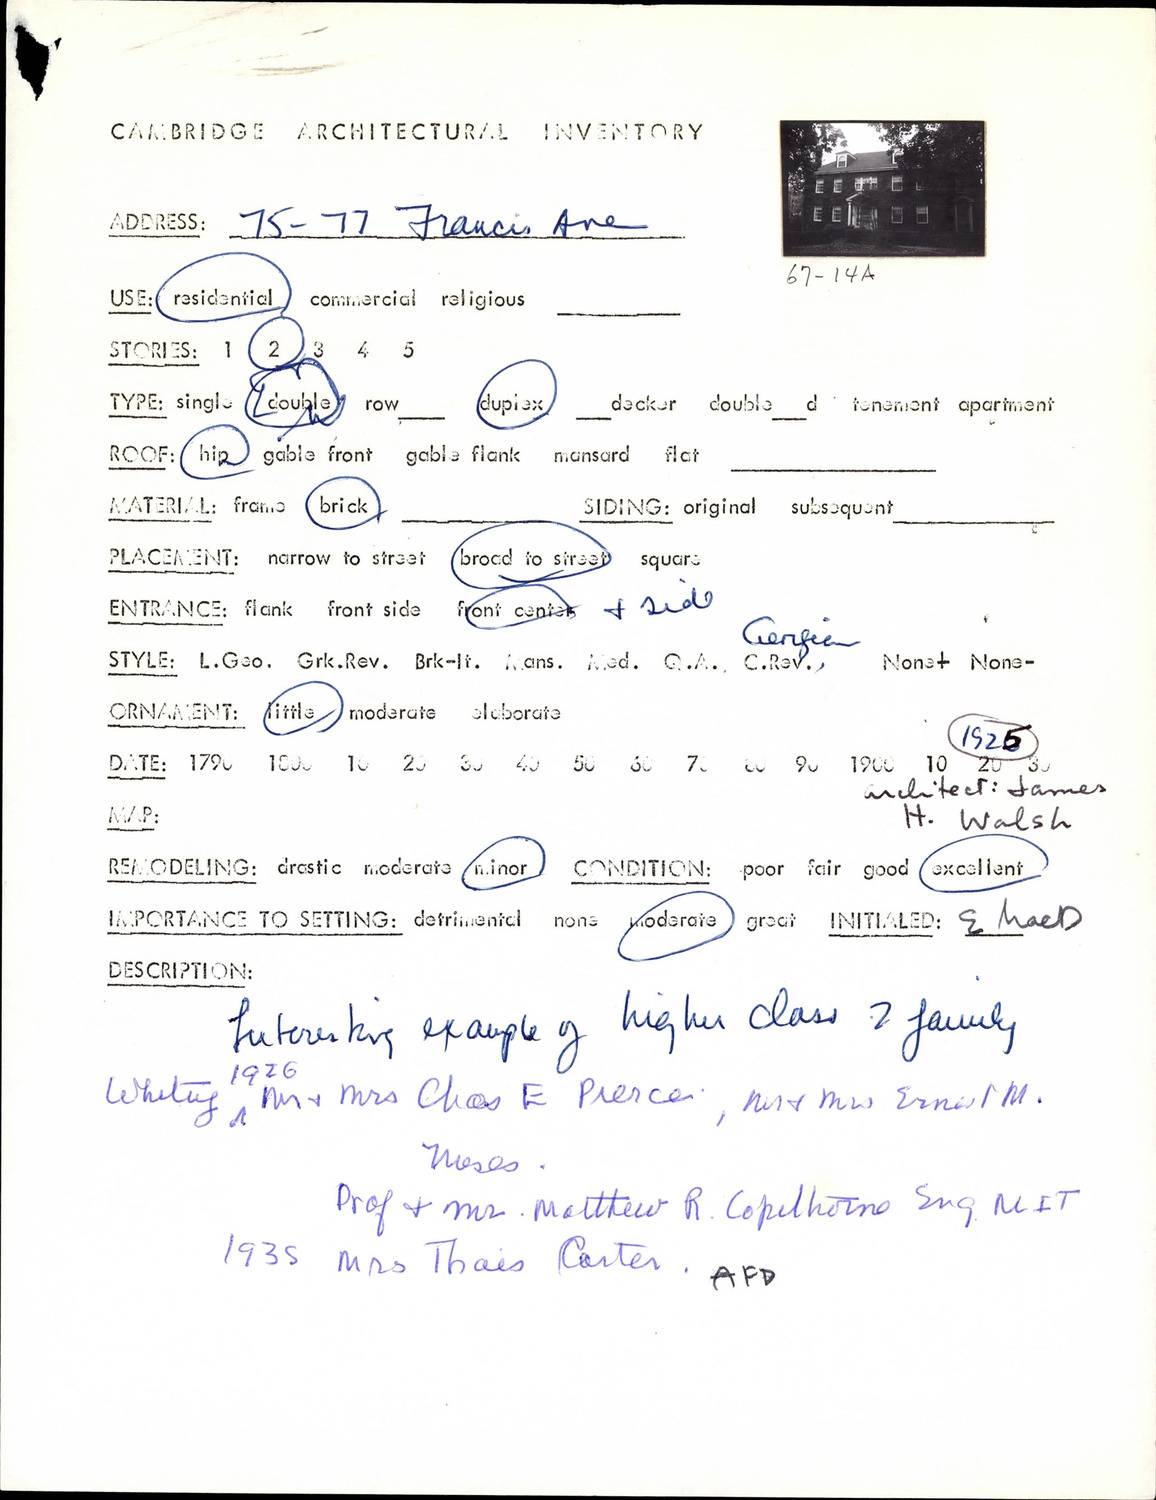 CAMBRIDGE ARCHITECTURAL INVENTORY
ADDRESS: 75-77 Francis Ave
67-14A
USE: residential commercial religious
STORIES: 1 2 3 4 5
TYPE: single double row___ duplex ___decker double___d tenement apartment
ROOF: hip gable front gable flank mansard flat
MATERIAL: frame brick SIDING: original subsequent
PLACEMENT: narrow to street broad to street square
ENTRANCE: flank front side front center + side
Georgian
STYLE: L.Geo. Grk.Rev. Brk-It. Mans. Med. Q.A., C.Rev., None+ None-
ORNAMENT: little moderate elaborate
1925
DATE: 1790 1800 10 20 30 40 50 60 70 80 90 1900 10 20 30
architect: James
H. Walsh
MAP:
REMODELING: drastic moderate minor CONDITION: poor fair good excellent
IMPORTANCE TO SETTING: detrimental none moderate great INITIALED: E MacD
DESCRIPTION:
Interesting example of higher class 2 family
1926
Whiting Mr + Mrs Chas E Pierce, Mr + Mrs Ernest M.
Moses.
Prof + Mrs. Matthew R. Copelthorne Eng MIT
1935 Mrs Thais Carter. AFD